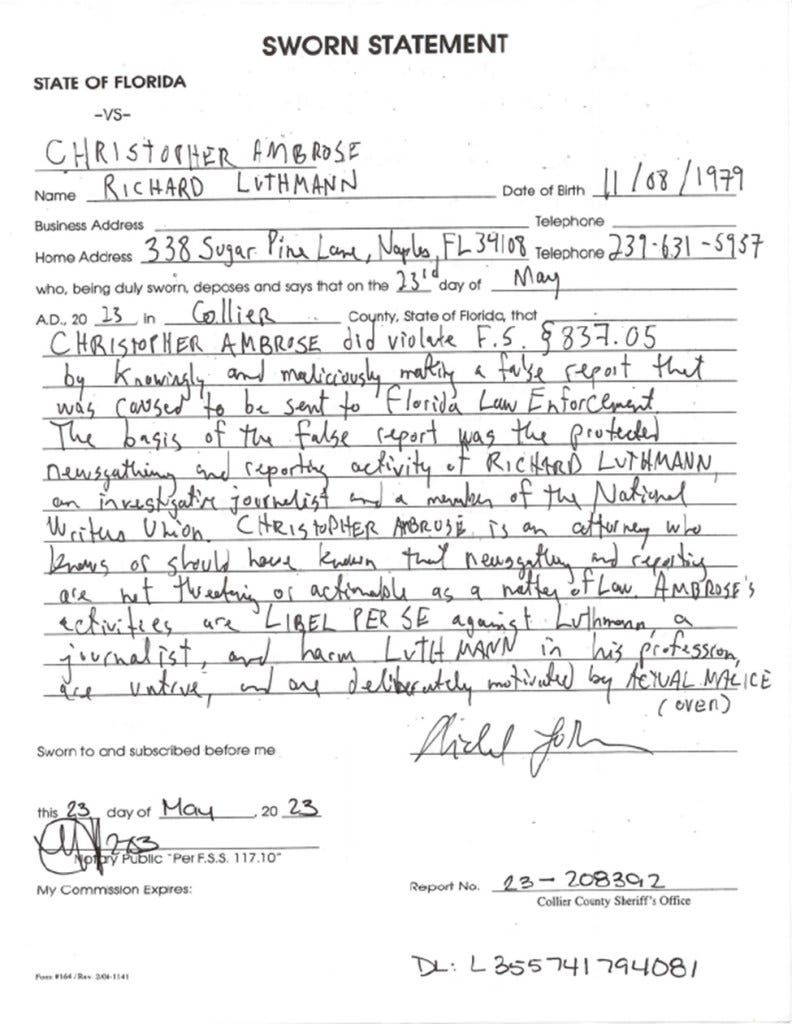 SWORN STATEMENT
STATE OF FLORIDA
-VS-
CHRISTOPHER AMBROSE
Name RICHARD LUTHMANN Date of Birth 11/08/1979
Business Address Telephone
Home Address 338 Sugar Pine Lane, Naples, FL 34108 Telephone 239-631-5957
who, being duly sworn, deposes and says that on the 23rd day of May
A.D., 20 23 in Collier County, State of Florida, that
CHRISTOPHER AMBROSE did violate F.S. § 837.05
by knowingly and maliciously making a false report that
was caused to be sent to Florida Law Enforcement.
The basis of the false report was the protected
newsgathering and reporting activity of RICHARD LUTHMANN,
an investigative journalist and a member of the National
Writers Union. CHRISTOPHER AMBROSE is an attorney who
knows or should have known that newsgathering and reporting
are not threatening or actionable as a matter of Law. AMBROSE's
activities are LIBEL PER SE against Luthmann, a
journalist, and harm LUTHMANN in his profession,
are untrue, and are deliberately motivated by ACTUAL MALICE
(OVER)
Sworn to and subscribed before me
this 23 day of May, 20 23
Notary Public "Per F.S.S. 117.10"
My Commission Expires:
Report No. 23-208392
Collier County Sheriff's Office
Form #164 / Rev. 2/04-1141
DL: L355741794081